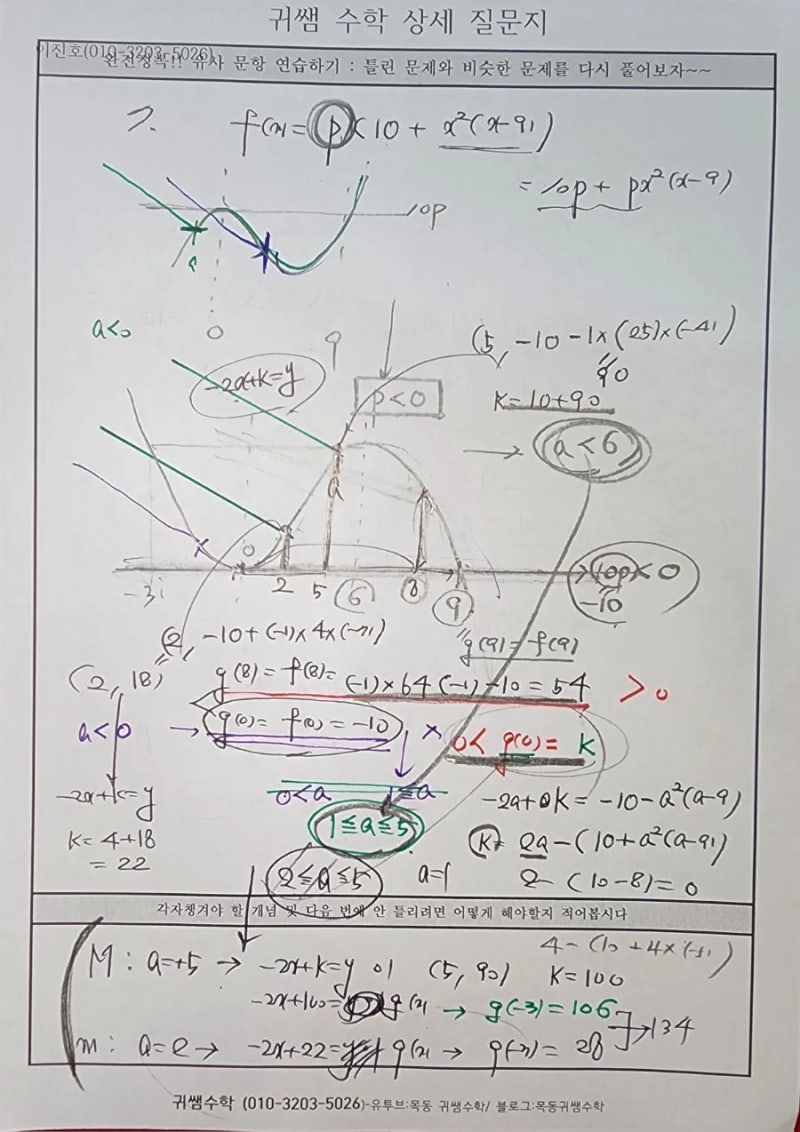 귀쌤 수학 상세 질문지
이진호(010-3203-5026)
완전정복!! 유사 문항 연습하기 : 틀린 문제와 비슷한 문제를 다시 풀어보자~~
7. f(x)= p(10 + x²(x-9))
= 10p + px²(x-9)
10p
a
a<0
0
9
(5, -10-1×(25)×(-4))
90
-2x+k=y
p<0
k=10+90
→ a<6
a
0
-3
2
5
6
8
9
10p<0
-10
(2, -10+(-1)×4×(-7))
g(9)=f(9)
(2, 18)
g(8)=f(8)= (-1)×64(-1)-10=54 >0
a<0 → g(0)=f(0)=-10 ×
0< g(0)= k
0<a 1≤a
-2x+k=y
1≤a≤5
-2a+k=-10-a²(a-9)
k=4+18
=22
k= 2a-(10+a²(a-9))
2≤a≤5
a=1
2-(10-8)=0
각자챙겨야 할 개념 및 다음 번에 안 틀리려면 어떻게 해야할지 적어봅시다
M: a=+5 → -2x+k=y 이 (5, 90) k=100
-2x+100= g(x) → g(-3)=106
→134
m: a=2 → -2x+22= g(x) → g(-3)= 28
귀쌤수학 (010-3203-5026)-유투브:목동 귀쌤수학/ 블로그:목동귀쌤수학